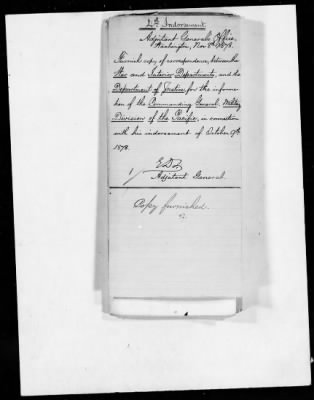 2d Indorsement
Adjutant General's Office,
Washington, Nov. 8th 1878.
Furnish copy of correspondence, between the
War and Interior Departments, and the
Department of Justice for the informa-
tion of the Commanding General, Milty
Division of the Pacific, in connection
with his indorsement of October 9th
1878.
Adjutant General.
Copy furnished.